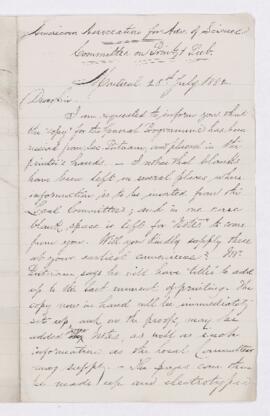 American Association for Adv. of Science
Committee on Print'g & Pub.
Montreal 25th July 1882
Dear Sir,
I am requested to inform you that
the "copy" for the General Programme has been
received from Mr. Putnam, and placed in the
printer's hands. — I notice that blanks
have been left in several places where
information is to be inserted from the
Local Committee; and in one case
blank space is left for "Notes" to come
from you. Will you kindly supply these
at your earliest convenience? Mr.
Putnam says he will have little to add
up to the last moment of printing. The
copy now in hand will be immediately
set up, and on the proofs may be
added any Notes, as well as such
information as the Local Committee
may supply. — The pages can then
be made up and electrotyped